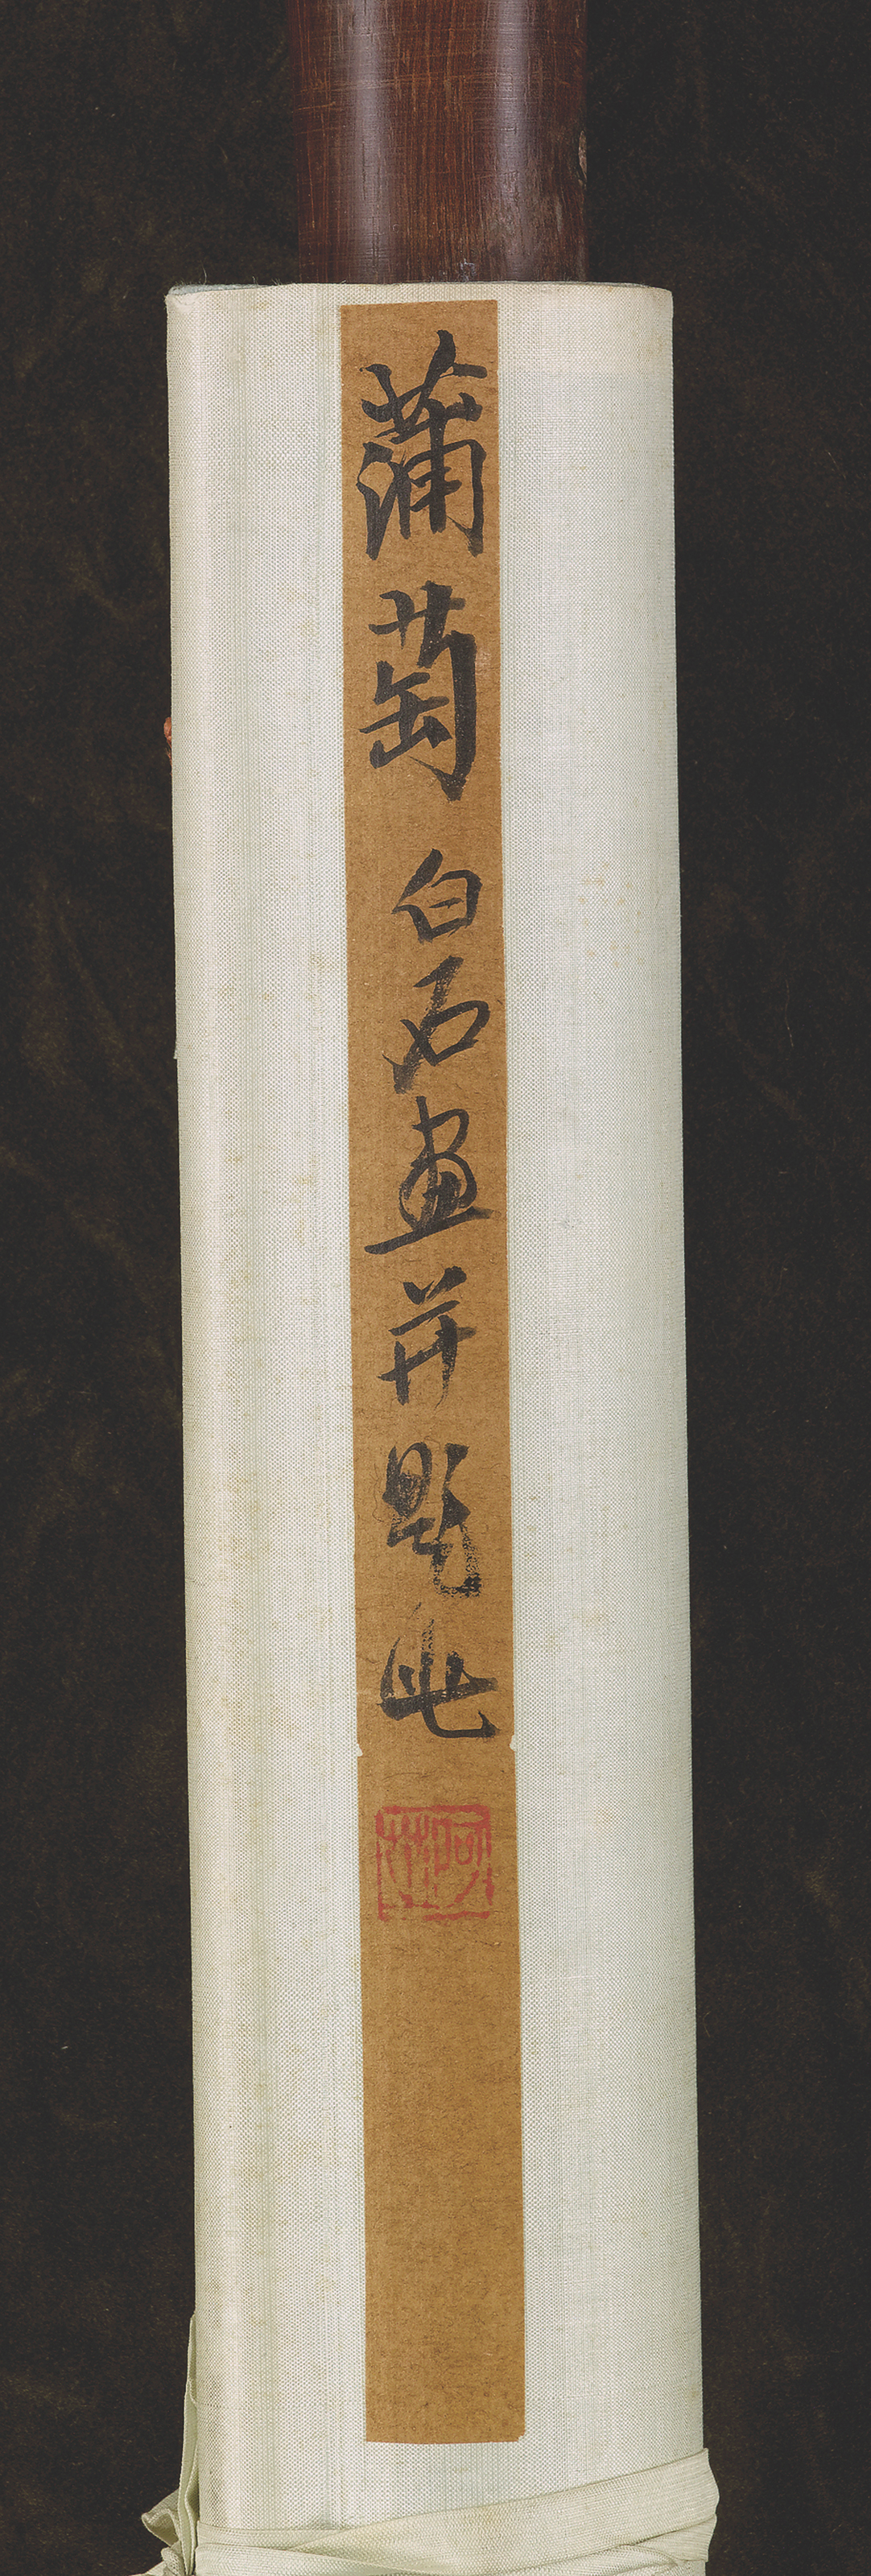 蒲萄 白石画并题此